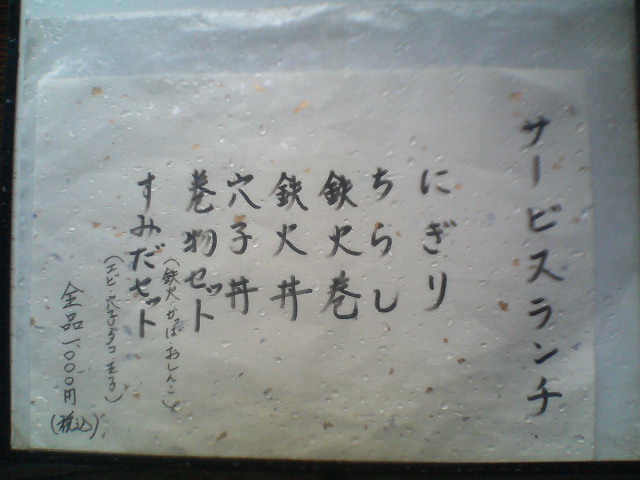 サービスランチ
にぎり
ちらし
鉄火巻
鉄火丼
穴子丼
巻物セット
(鉄火・かっぱ・おしんこ)
すみだセット
(エビ・穴子・タコ・玉子)
全品一〇〇〇円
(税込)